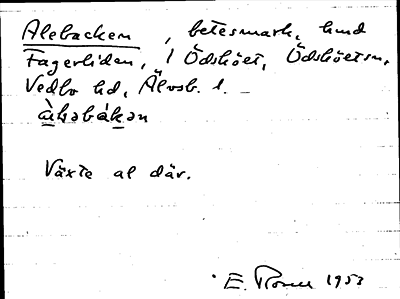 Alebacken, betesmark, hmd
Fagerliden, 1 Ödsköet, Ödsköets sn,
Vedbo hd, Älvsb. l. –
àləbákən
Växte al där.
E. 1953